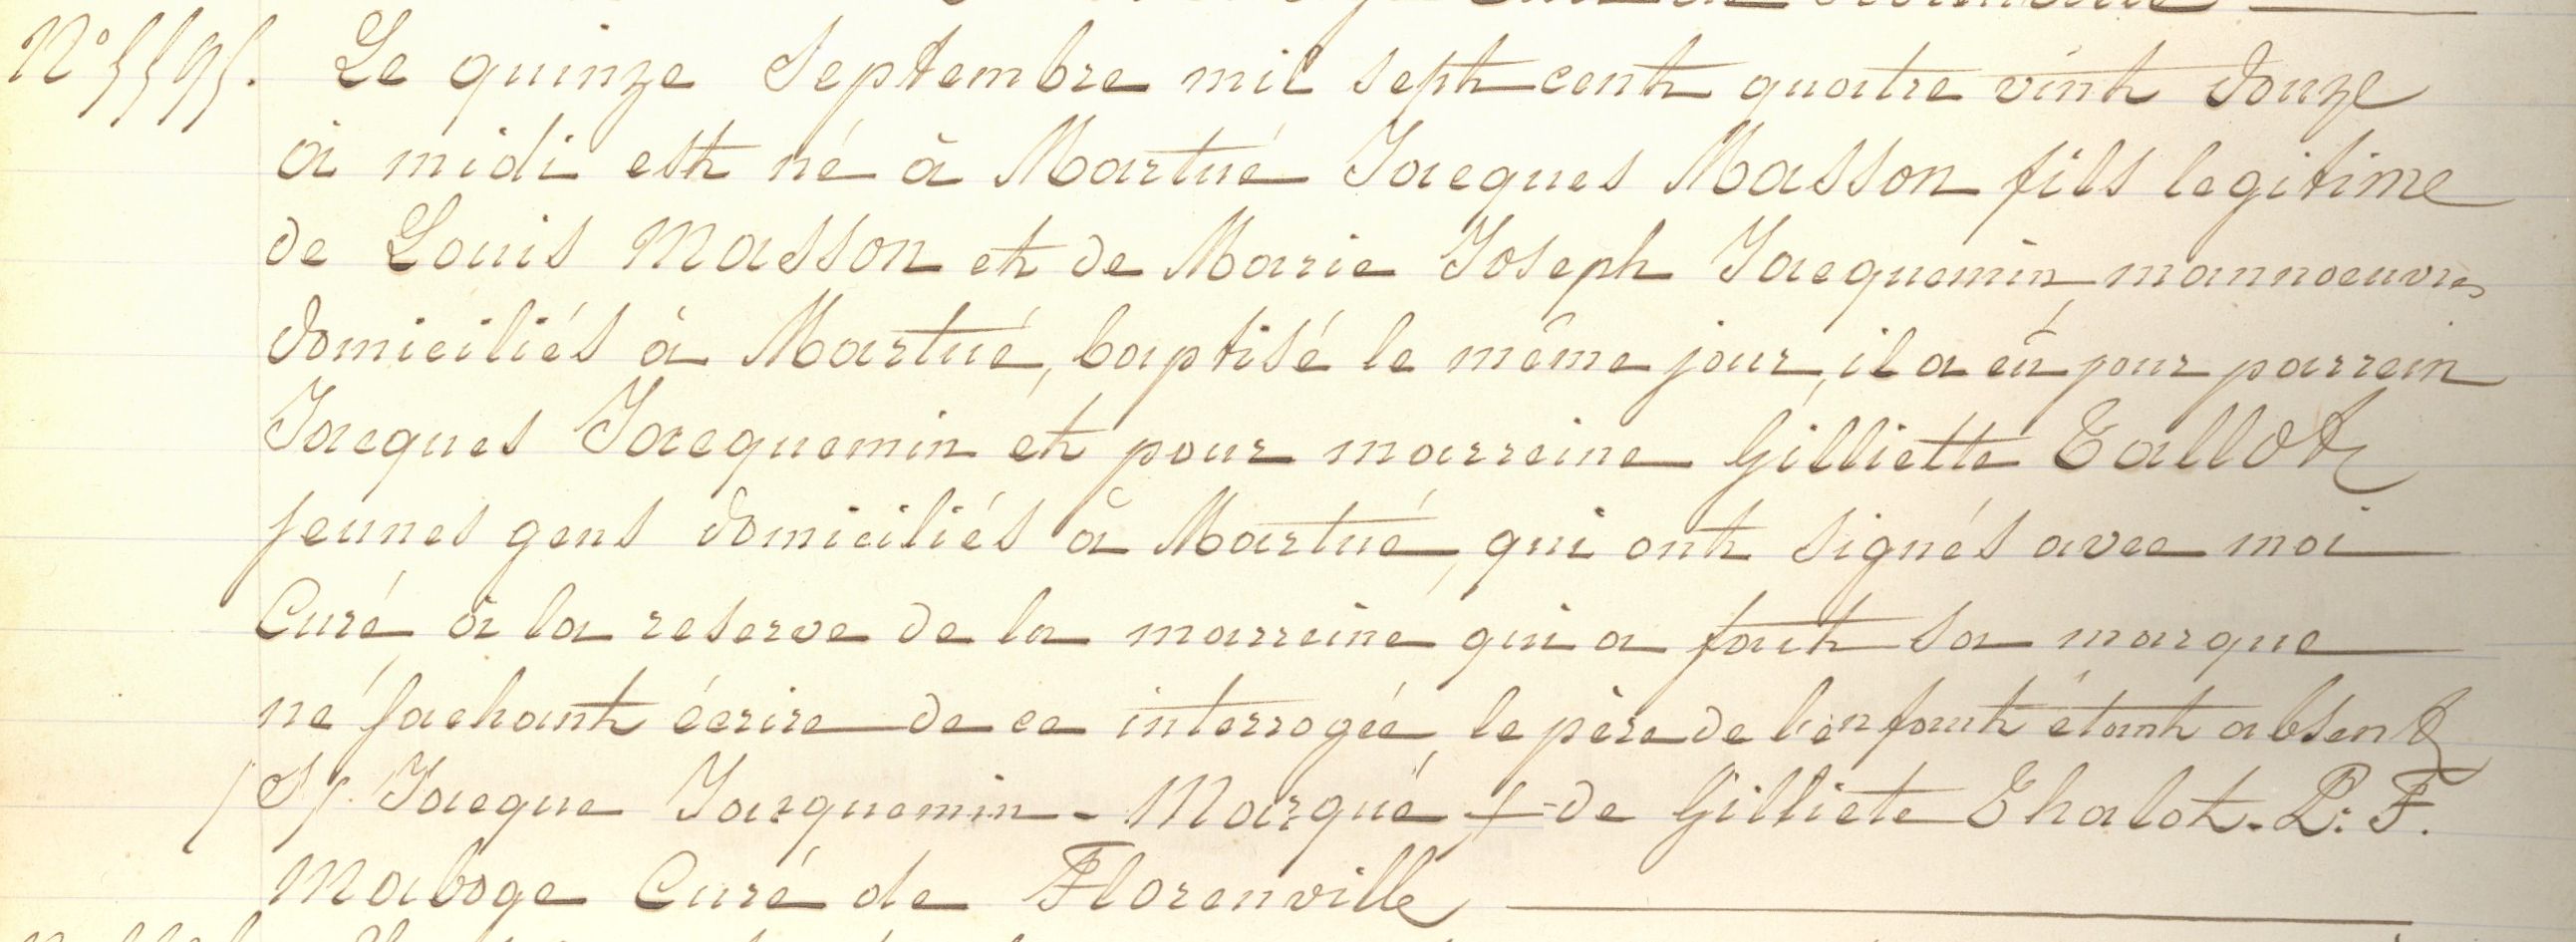 N° 5595. Le quinze Septembre mil sept cent quatre vint douze
à midi est né à Martué Jacques Masson fils legitime
de Louis Masson et de Marie Joseph Jacquemin, mannoeuvres
domiciliés à Martué, baptisé le même jour, il a eû pour parrein
Jacques Jacquemin et pour marreine Gilliette Tallot
jeunes gens domiciliés à Martué, qui ont signés avec moi
Curé à la reserve de la marreine qui a fait sa marque
ne sachant écrire de ce interrogée, le père de l'enfant étant absent
(S). Jacque Jacquemin - Marque + de Gilliete Thalot. L: F.
Maboge Curé de Florenville